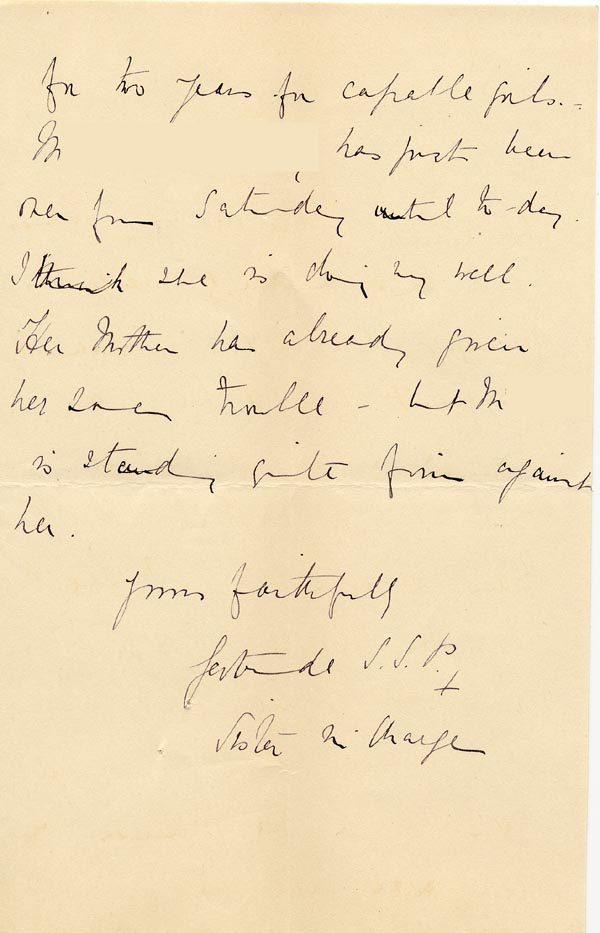 for two years for capable girls. -
M has just been
over from Saturday until to-day.
I think she is doing very well.
Her Mother has already given
her some trouble - but M
is standing quite firm against
her.
Yours faithfully
Gertrude S.S.P.
+
Sister in Charge